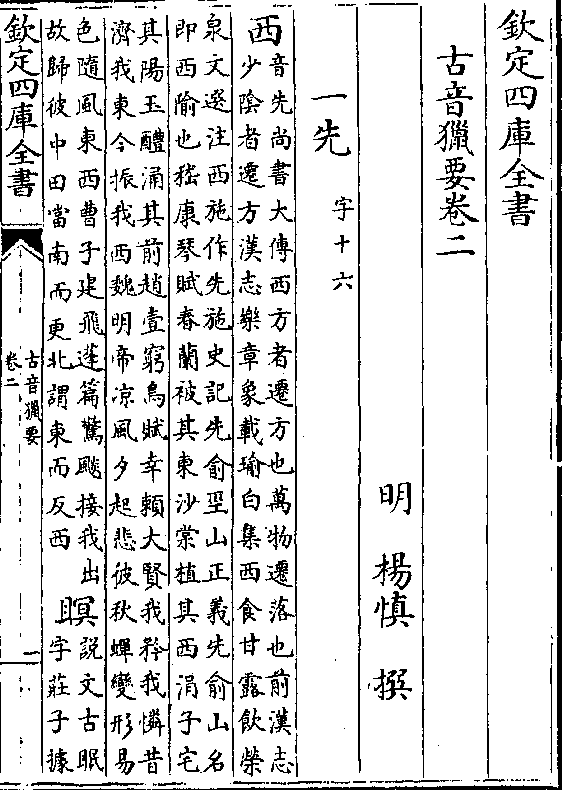 欽定四庫全書
古音獵要卷二
明 楊慎 撰
一先 字十六
西 音先尚書大傳西方者遷方也萬物遷落也前漢志
少陰者遷方漢志樂章象載瑜白集西食甘露飲榮
泉文選注西施作先施史記先俞巠山正義先俞山名
即西隃也嵇康琴賦春蘭被其東沙棠植其西涓子宅
其陽玉醴涌其前趙壹窮鳥賦幸賴大賢我矜我憐昔
濟我東今振我西魏明帝凉風夕起悲彼秋蟬變形易
色隨風東西曹子建飛蓬篇驚飈接我出
故歸彼中田當南而更北謂東而反西
瞑 說文古眠
字莊子據
欽定四庫全書
古音獵要
卷二
一